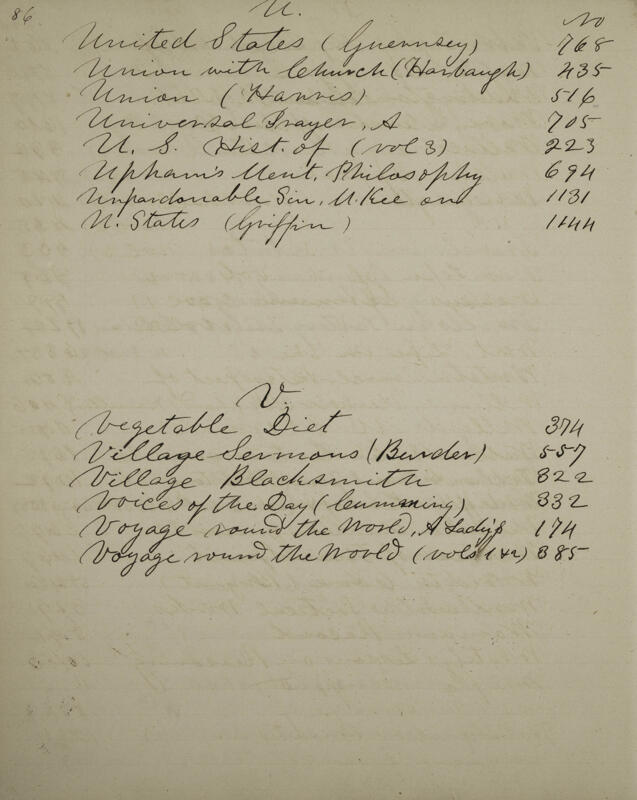 86
U.
No
United States (Guernsey) 768
Union with Church (Harbaugh) 435
Union (Harris) 516
Universal Prayer, A 705
U. S. Hist. of (vol 3) 223
Upham's Ment. Philosophy 694
Unpardonable Sin, McKee on 1131
U. States (Griffin) 1144
V.
Vegetable Diet 374
Village Sermons (Burder) 557
Village Blacksmith 322
Voices of the Day (Cumming) 332
Voyage round the World, A Lady's 174
Voyage round the World (vols 1 & 2) 385